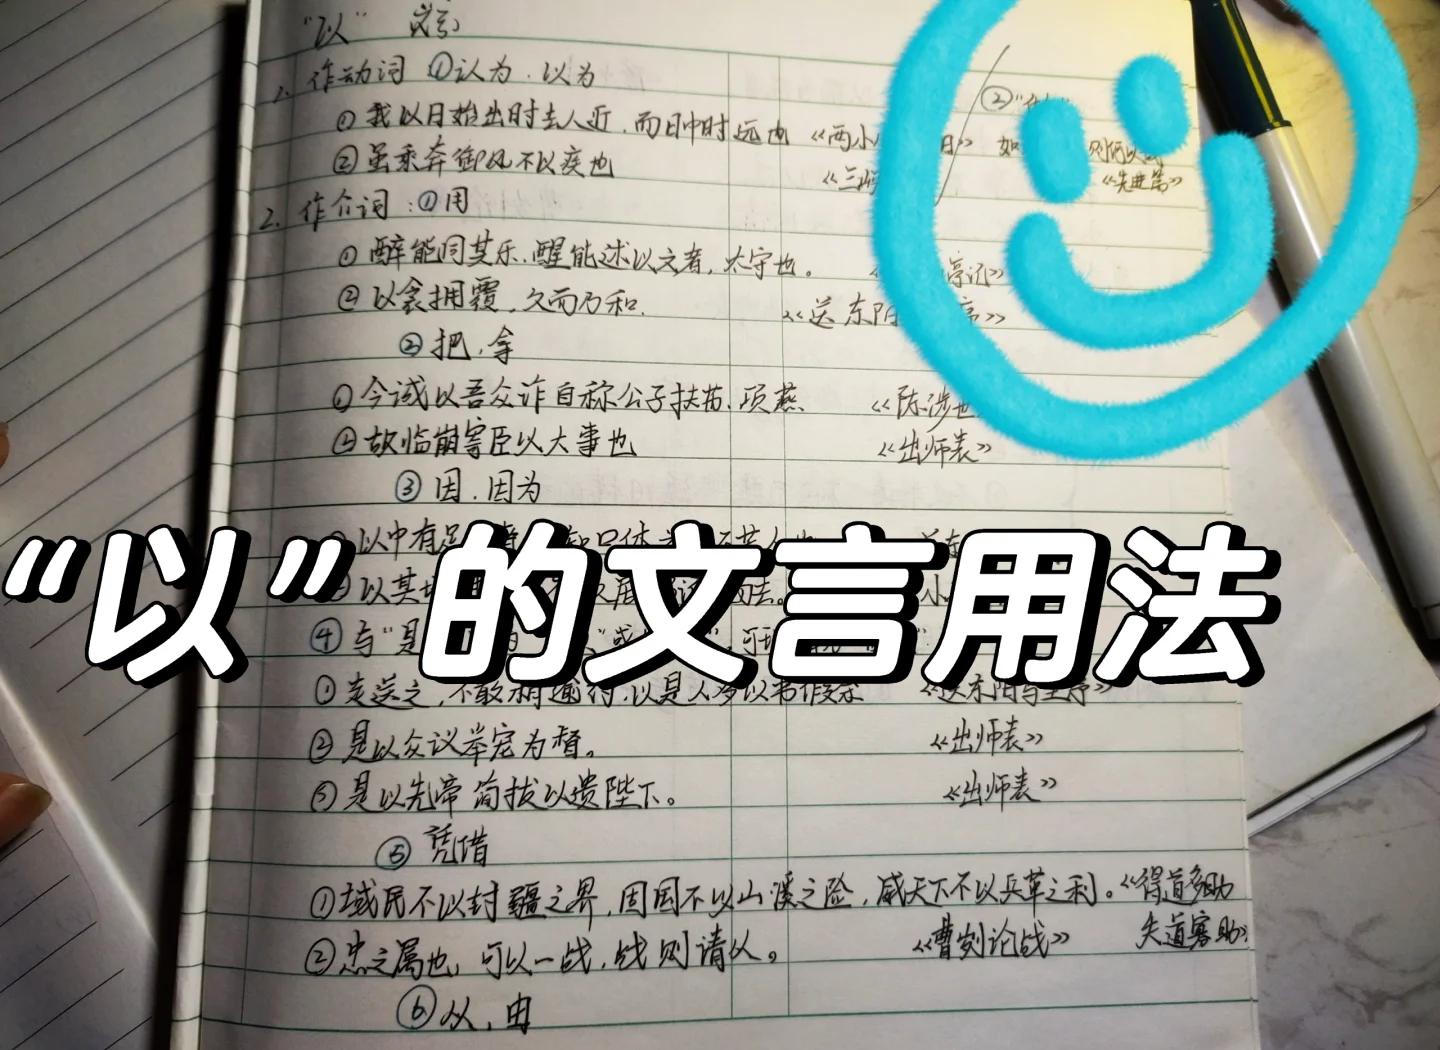 "以"
1. 作动词 ①认为．以为
①我以日始出时去人近，而日中时远也 《两小 日》 如 则何以
②虽乘奔御风不以疾也 《三 《先进篇》
2. 作介词：①用
①醉能同其乐，醒能述以文者，太守也。 亭记》
②以衾拥覆，久而乃和. 《送东阳 序》
②把，拿
①今诚以吾众诈自称公子扶苏、项燕 《陈涉世
②故临崩寄臣以大事也 《出师表》
③因．因为
以中有足
以其境
"以"的文言用法
④与"是
①走送之，不敢稍逾约．以是人多以书假余 《送东阳马生序》
②是以众议举宠为督。 《出师表》
③是以先帝简拔以遗陛下。 《出师表》
⑤凭借
①域民不以封疆之界，固国不以山溪之险，威天下不以兵革之利。《得道多助
②忠之属也，可以一战，战则请从。 《曹刿论战》 失道寡助》
⑥从，由